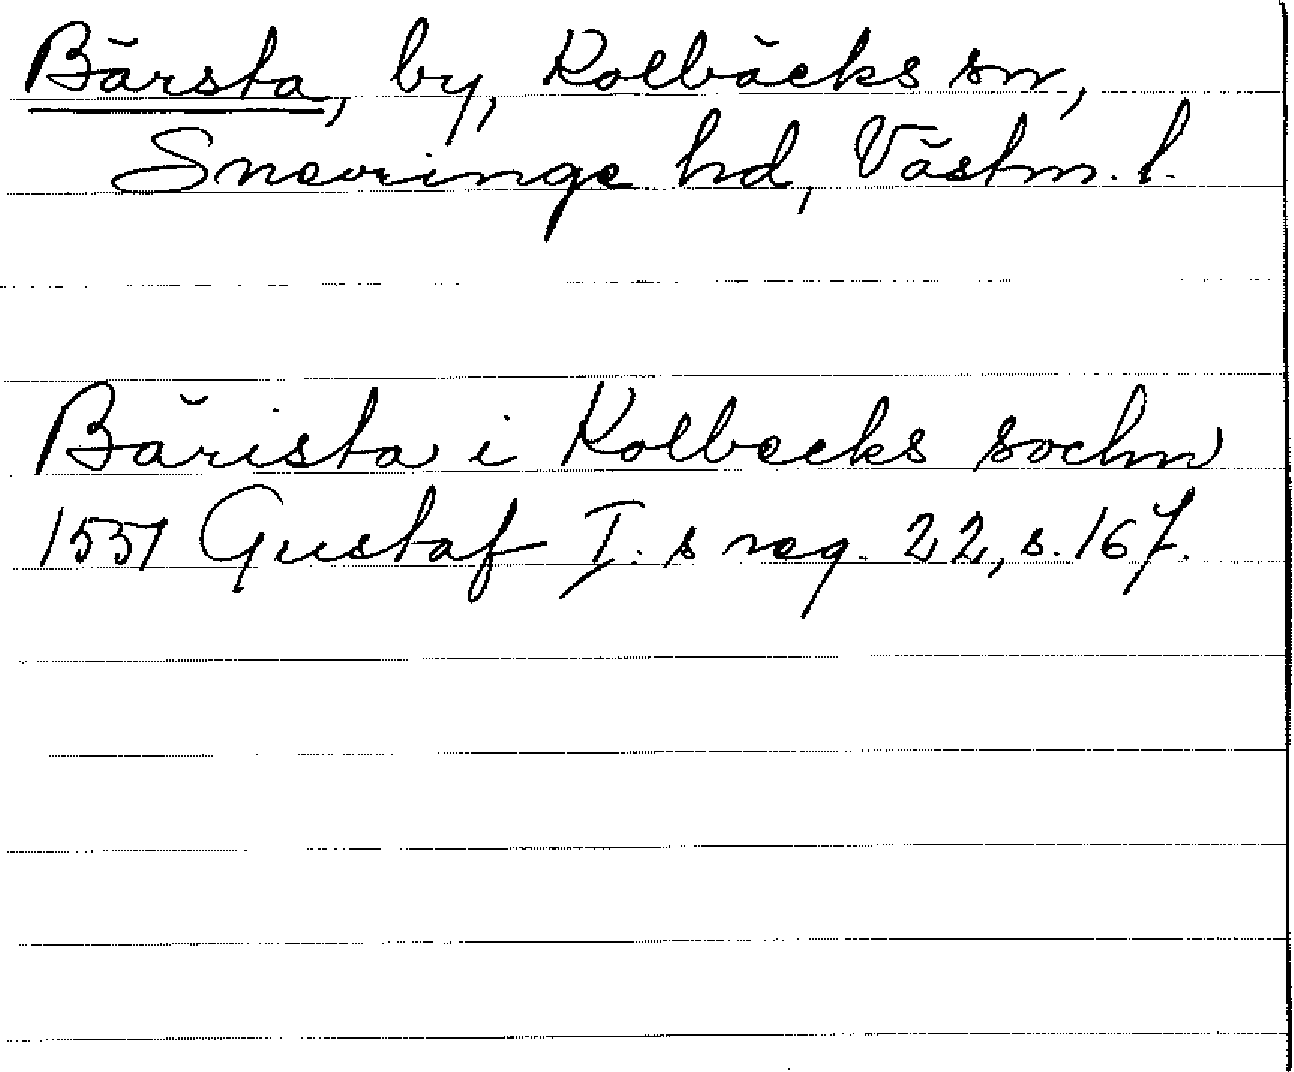 Bärsta, by, Kolbäcks sn,
Snevringe hd, Västm. l.
Bärista i Kolbecks sochn
1551 Gustaf I:s reg. 22, s. 167.